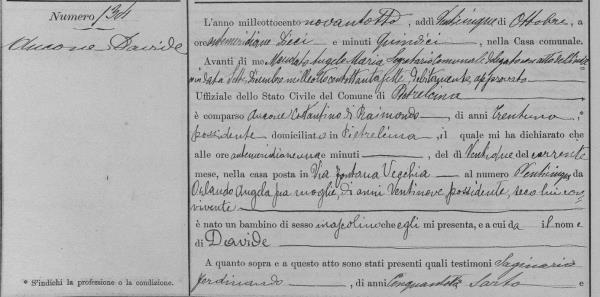 Numero 134
Aucone Davide
L'anno milleottocento novantotto, addì venticinque di Ottobre, a
ore antimeridiane Dieci e minuti Quindici, nella Casa comunale.
Avanti di me Angelo Maria Segretario Comunale Delegato con atto
in data Sette Dicembre milleottocentottantasette debitamente approvato
Uffiziale dello Stato Civile del Comune di Pietrelcina
è comparso Aucone Costantino di Raimondo, di anni Trentuno,*
possidente domiciliato in Pietrelcina, il quale mi ha dichiarato che
alle ore antimeridiane una e minuti, del dì Ventidue del corrente
mese, nella casa posta in Via Fontana Vecchia al numero da
Orlando Angela sua moglie, di anni Ventinove possidente, seco lui con=
vivente
è nato un bambino di sesso mascolino che egli mi presenta, e a cui dà il nome
di Davide
A quanto sopra e a questo atto sono stati presenti quali testimoni
Ferdinando, di anni Cinquantotto Sarto e
* S'indichi la professione o la condizione.